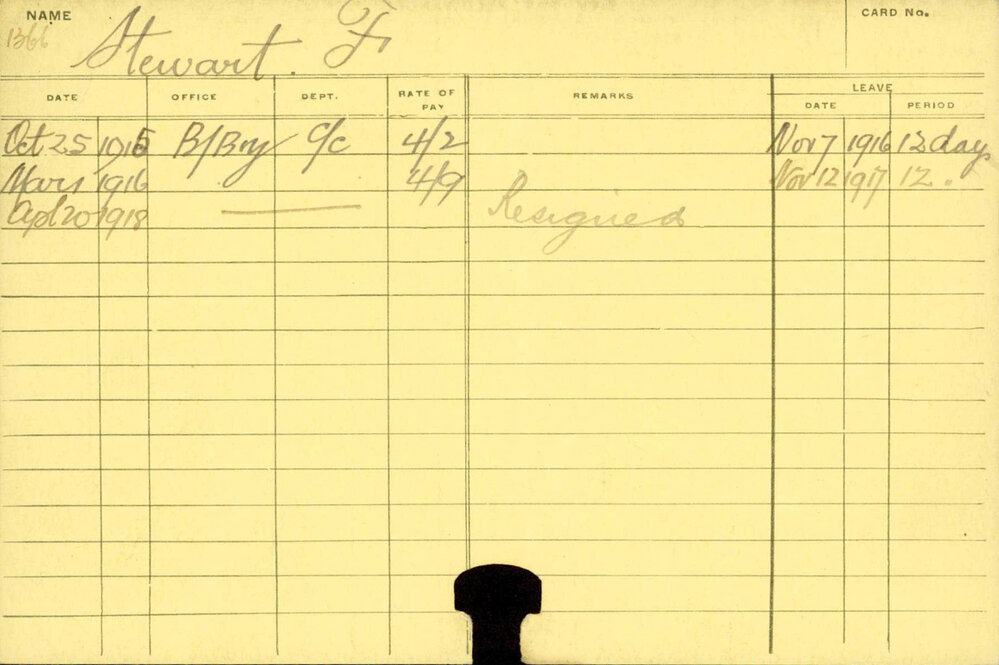 NAME CARD No.
1366 Stewart. F.
LEAVE
DATE OFFICE DEPT. RATE OF PAY REMARKS DATE PERIOD
Oct 25 1915 B/Bry C/C 4/2 Nov 7 1916 12 days
Mar 1916 4/9 Nov 12 1917 12 "
Apl 20 1918 Resigned